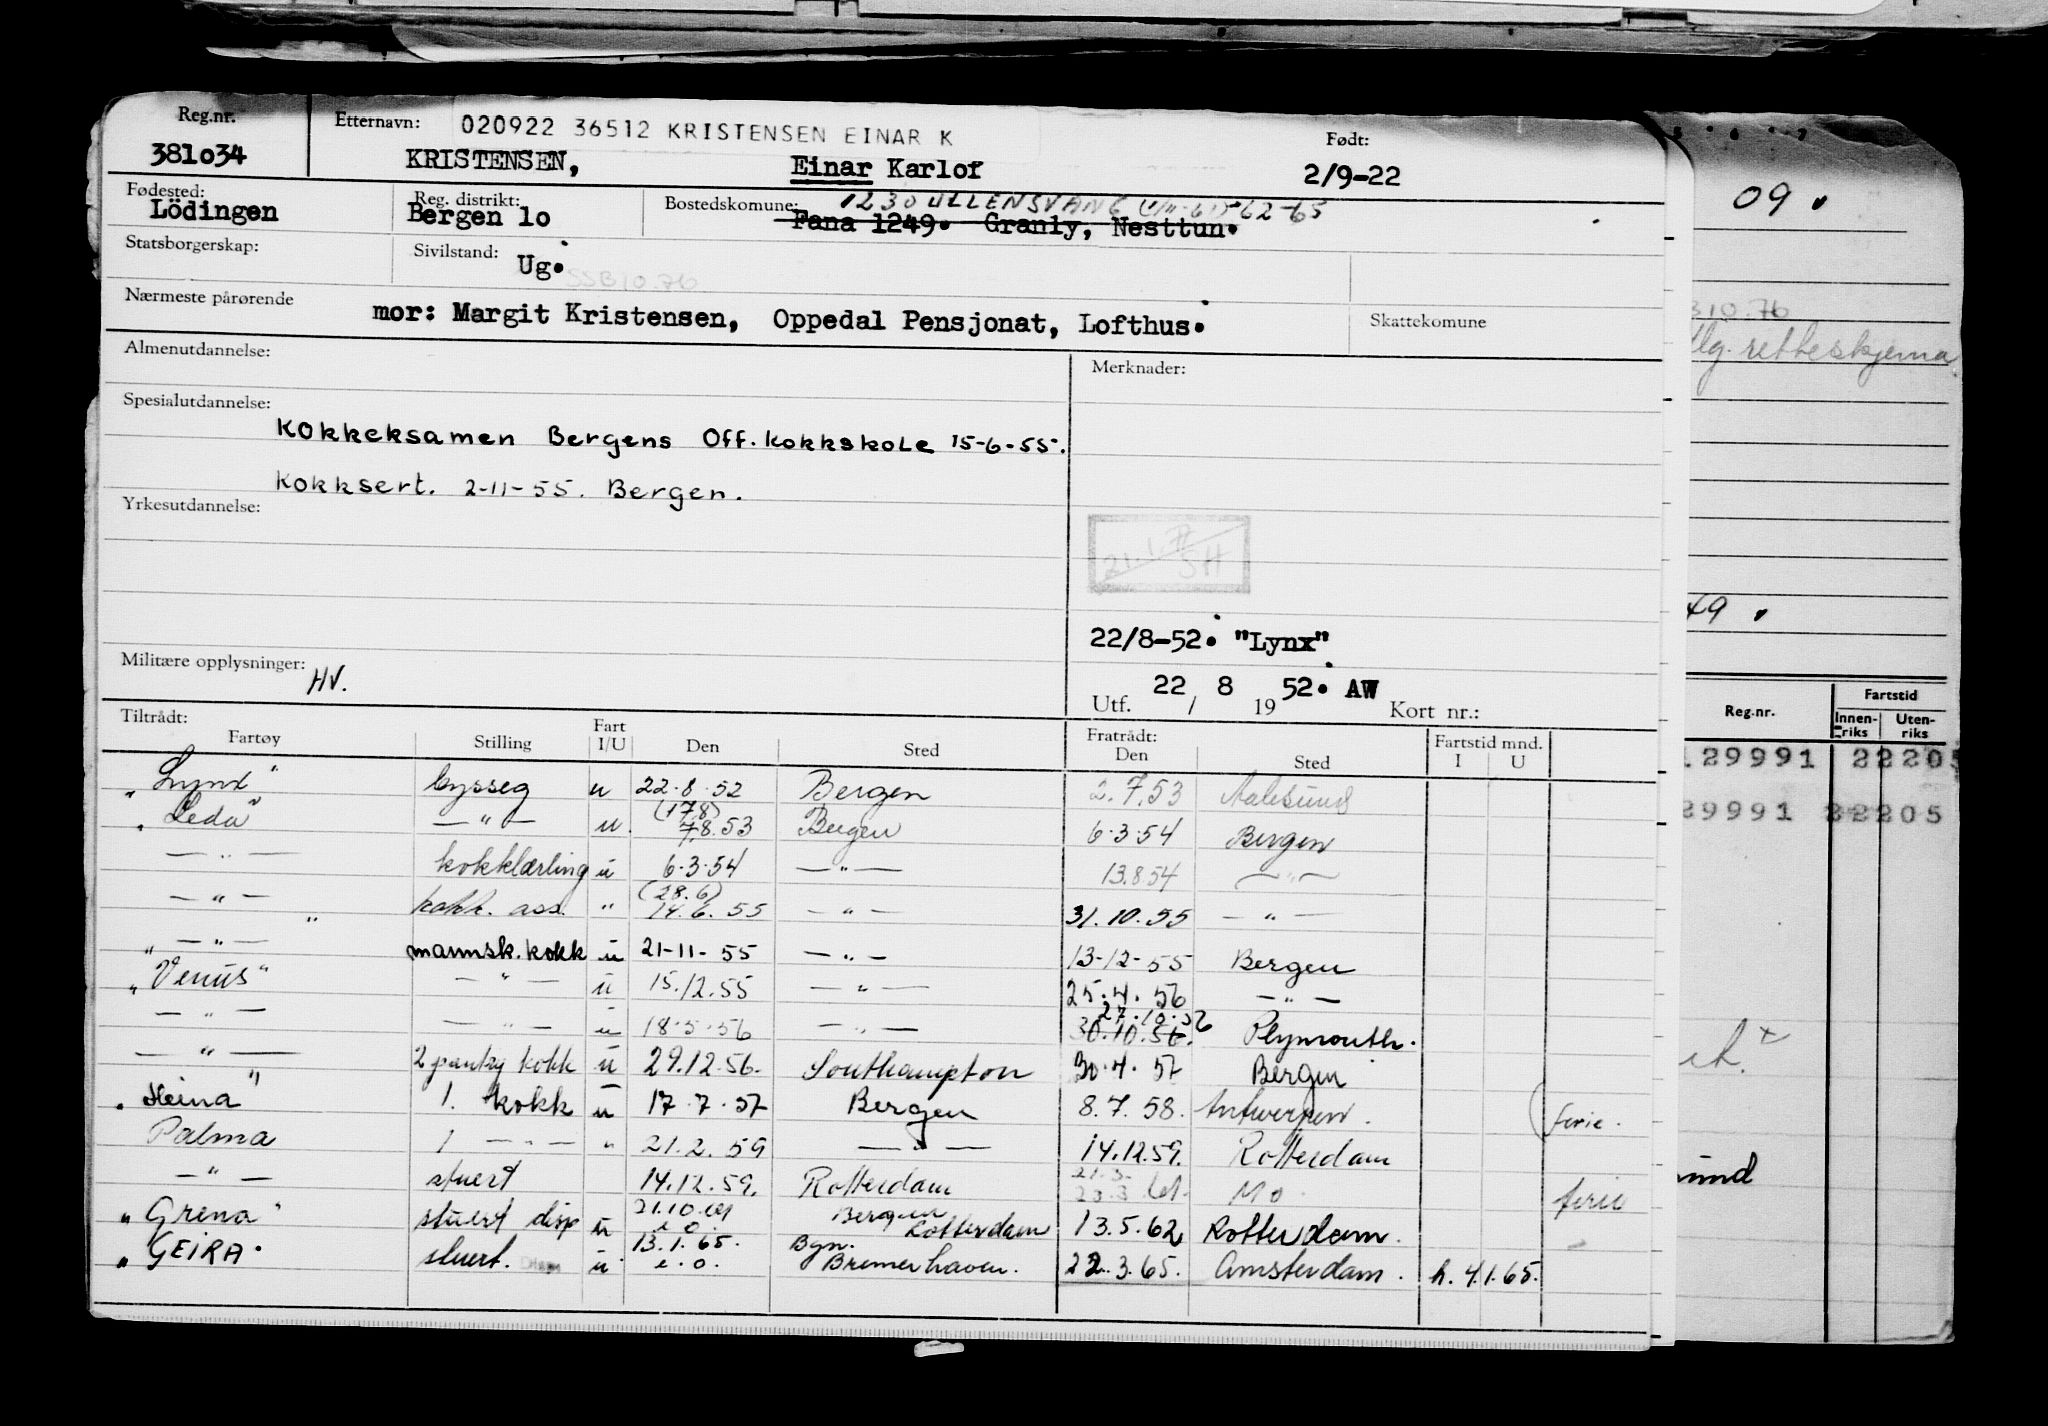 Reg.nr. Etternavn: 020922 36512 KRISTENSEN EINAR K Født:
381o34 KRISTENSEN, Einar Karlof 2/9-22
Fødested: Reg. distrikt: Bostedskomune: 1230 ULLENSVANG 62-65
Lödingen Bergen lo Fana 1249. Granly, Nesttun.
Statsborgerskap: Sivilstand: Ug.
SSB 10.76
Nærmeste pårørende mor: Margit Kristensen, Oppedal Pensjonat, Lofthus. Skattekomune
Almenutdannelse: Merknader:
Spesialutdannelse:
Kokkeksamen Bergens Off. Kokkskole 15-6-55.
Kokksert. 2-11-55. Bergen.
Yrkesutdannelse:
SH
22/8-52. "Lynx"
Militære opplysninger: HV.
Utf. 22 / 8 19 52. AW Kort nr.:
Tiltrådt: Fratrådt: Fartstid mnd.
Fartøy Stilling Fart I/U Den Sted Den Sted I U
"Lynx" bysseg u 22.8.52 Bergen 2.7.53 Aalesund
"Leda" —"— u. (17.8) 7.8.53 Bergen 6.3.54 Bergen
—"— kokklærling u 6.3.54 —"— 13.8.54 —"—
—"— kokk. ass. " (28.6) 14.6.55 —"— 31.10.55 —"—
—"— mannsk. kokk u 21-11-55 —"— 13-12-55 Bergen
"Venus" —"— u 15.12.55 —"— 25.4.56 —"—
—"— —"— u 18.5.56 —"— 27.10.56 30.10.56. Plymouth.
—"— 2 pantry kokk u 29.12.56. Southampton 30.4.57 Bergen
"Heina" 1. kokk u 17.7.57 Bergen 8.7.58. Antwerpen. ferie.
Palma 1 —"— " 21.2.59 —"— 14.12.59. Rotterdam
—"— stuert 14.12.59. Rotterdam 21.3. 23.3.61. Mo ferie
"Grena" stuert disp u 21.10.61 e.o. Bergen Rotterdam 13.5.62 Rotterdam.
"GEIRA. stuert. u 13.1.65. e.o. Bgn. Bremerhaven. 22.3.65. Amsterdam. h. 4.1.65.
09.
310.76
retteskjema
49.
Reg.nr. Fartstid
Innen-riks Uten-riks
129991 22205
29991 22205
sund